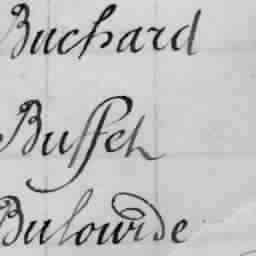 Buchard
Busseh
Bulowide